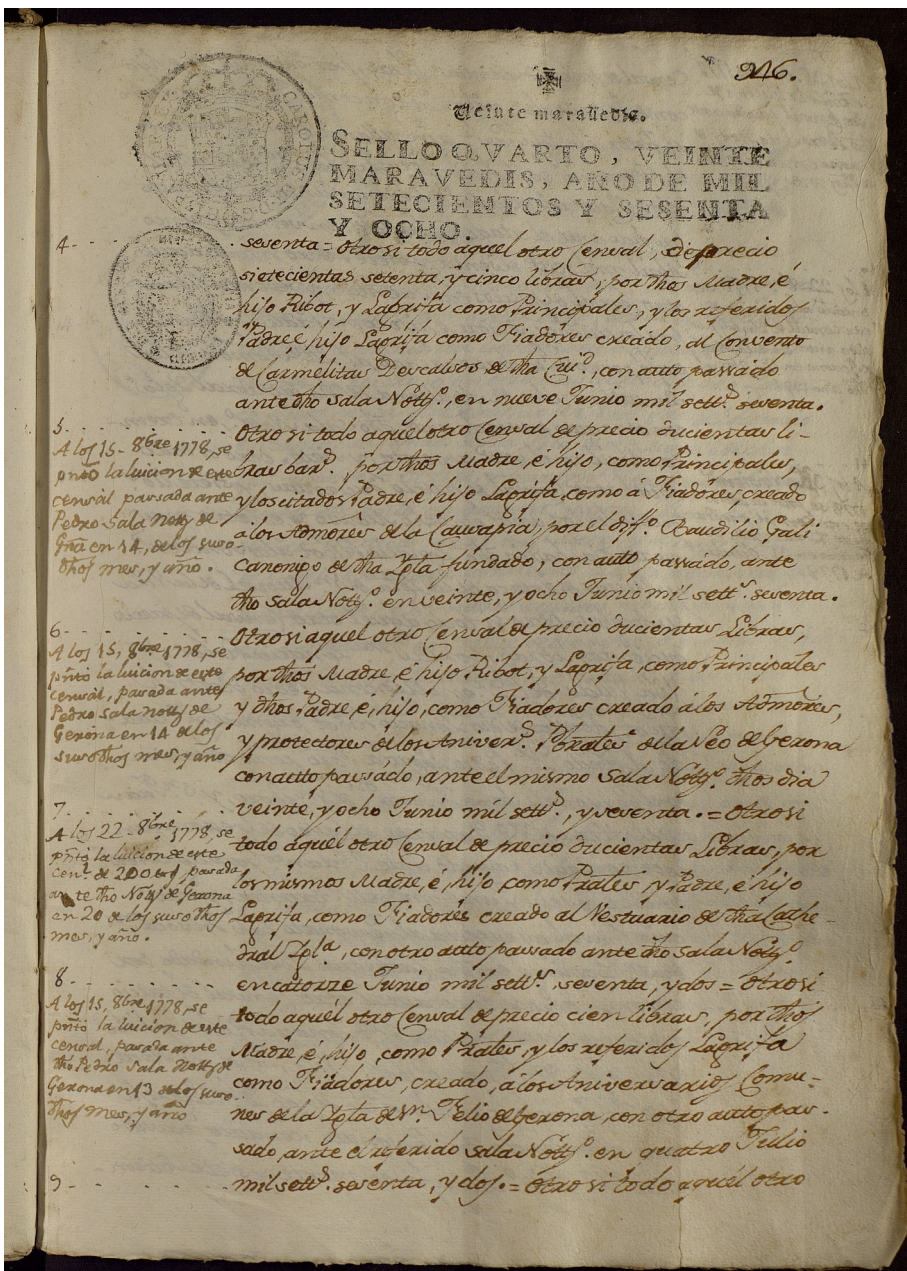 946.
Veinte maravedis.
SELLO QVARTO, VEINTE
MARAVEDIS, AÑO DE MIL
SETECIENTOS Y SESENTA
Y OCHO.
4 - - . sesenta = Otro si todo aquel otro Censal, de precio
sietecientas setenta, y cinco libras, por dhos Madre, é
hijo Ribot, y Laprifa como Principales, y los referidos
Padre é hijo Laprifa como Fiadores creado, al Convento
de Carmelitas Descalsos de dha Ciud., con auto passado
ante dho Sala Nottº. en nueve Junio mil settˢ. sesenta.
5. - - - Otro si todo aquel otro Censal de precio ducientas li-
bras barˢ. por dhos Madre, é hijo, como Principales,
y los citados Padre, é hijo Laprifa, como á Fiadores, creado
á los Admōres de la Causapia, por el diffº. Baudilio Gali
canonigo de dha Ygla fundado, con auto passado, ante
dho Sala Nottº. en veinte, y ocho Junio mil settˢ. sesenta.
A los 15 - 8bre 1778, se
pñtó la luicion de este
censál, passada ante
Pedro Sala Notty de
Gña en 14, de los suso
dhos mes, y año.
6 - - - Otro si aquel otro Censal de precio ducientas Libras,
por dhos Madre, é hijo Ribot, y Laprifa, como Principales
y dhos Padre, é, hijo, como Fiadores creado á los Admōres,
y protectores de los Aniverˢ. Pbrales de la Seo de Gerona
con auto passádo, ante el mismo Sala Nottº. dhos dia
veinte, y ocho Junio mil settˢ., y sesenta. = Otro si
A los 15, 8bre 1778, se
pñtó la luicion de este
censál, pasada ante
Pedro Sala Notty de
Gerona en 14 de los
suso dhos mes, y año
7 - - -
todo aquél otro Censal de precio ducientas Libras, por
los mismos Madre, é, hijo como Prales, y Padre, é hijo
Laprifa, como Fiadores creado al Vestuario de dha Cathe-
dral Yglª, con otro auto passado ante dho Sala Nottº
en catorze Junio mil settˢ. sesenta, y dos = Otro si
A los 22 - 8bre, 1778, se
pñtó la luicion de este
cenˡ. de 200 passada
ante dho Notty de Gerona
en 20 de los suso dhos
mes, y año.
8 - - -
todo aquél otro Censal de precio cien libras, por dhos
Madre, é, hijo, como Prales, y los referidos Laprifa
como Fiadores, creado, á los Aniversarios Comu-
nes de la Ygla de Sn. Felio de Gerona, con otro auto pas-
sado, ante el referido Sala Nottº. en quatro Julio
A los 15, 8bre 1778, se
pñtó la luicion de este
censal, passada ante
dho Pedro Sala Notty de
Gerona en 13 de los suso
dhos mes, y año
9 - - - mil settˢ. sesenta, y dos. = Otro si todo aquél otro